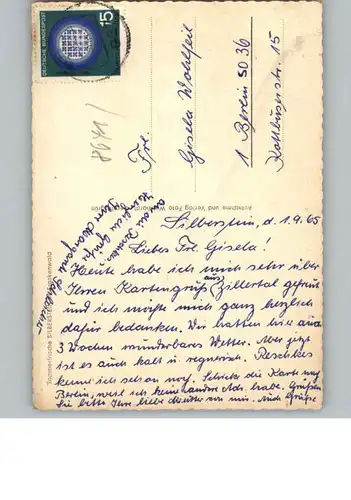 DEUTSCHE BUNDESPOST
15
8641/
Frl.
Gisela Wohlfeil
1 Berlin SO 36
Kottbuserstr. 15
Aufnahme und Verlag Foto
Sommerfrische SILBERSTEIN Frankenwald
Silberstein, d. 1.9.65
Liebes Frl. Gisela!
Heute habe ich mich sehr über
Ihren Kartengruß aus Zillertal gefreut
und ich möchte mich ganz herzlich
dafür bedanken. Wir hatten hier auch
3 Wochen wunderbares Wetter. Aber jetzt
ist es auch kalt u regnerisch.
kenne ich schon noch. Schicke die Karte nach
Berlin, weil ich keine andere Adr. habe. Grüßen
Sie bitte Ihre liebe Mutter von mir. Auch Grüße
an die
Herzliche Grüße
Ihre Margarete